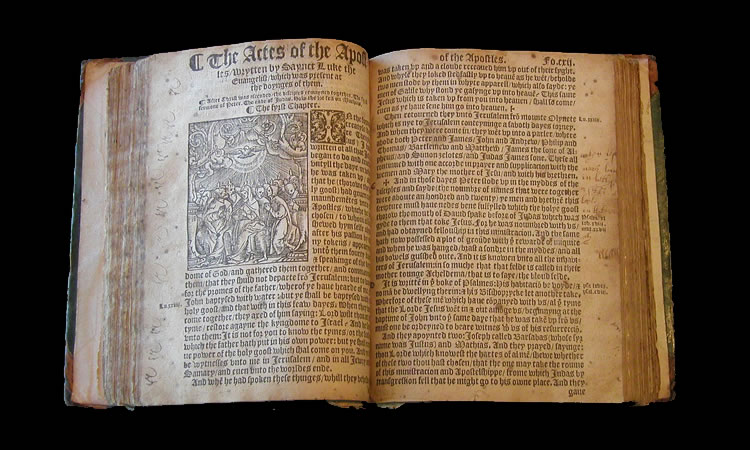 ¶ The Actes of the Apost
les, Wrytten by Saynct Luke the
Euangelist, which was present at
the doynges of them.
¶ After Christ was
sermons of Peter. The ende of Judas.
¶ The fyrst Chapter.
IN the
began to do and
vntyll the daye
he was taken vp
that he
Apostles, whom
chosen: to whom
shewed hym selfe
after his passyon
ny tokens
vnto them fourty
speakynge of the
dome of God, and gathered them together, and
them, that they shuld not departe frō Jerusalem: but
for the promes of the father, wherof ye haue hearde of
John baptysed with water: but ye shall be baptysed with
holy goost, and that with in this feaw dayes. When they
come together, they axed of him, saying: Lord wilt thou
tyme, restore agayne the kyngdome to Israel: And he
vnto them: It is not for you to know the tymes, or the
which the father hath put in his own power: but ye shall
ue power of the holy goost which shal come on you. And
be wytnesses vnto me in Jerusalem, and in all Jewry
Samary, and euen vnto the worldes ende.
And whē he had spoken these thynges, whill they beheld
of the Apostles. Fo.cxii.
was taken vp and a cloude receaued hym vp out of their syght.
And whyle they loked stedfastly vp to heauē as he wēt, beholde
two men stode by them in whyte apparell which also sayde: ye
men of Galile why stond ye gasynge vp into heauē? This same
Jesus which is taken vp from you into heauen, shall so come,
euen as ye haue sene him go into heauen. ✠
Then returned they vnto Jerusalem frō mounte Olyuete
which is nye to Jerusalem conteynynge a saboth dayes iorney.
And when they were come in, they wēt vp into a parler, where
abode both Peter and James, John and Andrew, Philip and
Thomas, Bartlemew and Matthew, James the sone of Al-
pheus, and Simon zelotes, and Judas James sone. These all
continued with one acorde in prayer and supplicacion with the
wemen and Mary the mother of Jesu, and with his brethern
✠ And in those dayes Peter stode vp in the myddes of the
disciples and sayde (the noumbre of names that were together
were aboute an hondred and twenty) ye men and brethrē this
scripture must haue nedes bene fulfylled which the holye goost
thorow the mouth of Dauid spake before of Judas, which was
gyde to them that toke Jesus. For he was noumbred with vs,
and had obtayned fellouship in this ministracion. And the same
hath now possessed a plot of groūde with ye rewarde of iniquite
and when he was hanged, burst a sondre in the myddes, and all
his bowels gusshed out. And it is knowen vnto all the inhabi-
ters of Jerusalem: in so muche that that felde is called in their
mother tounge Acheldema, that is to saye, the bloud felde.
It is writtē in ye boke of psalmes: His habitacio be voyde, &
no mā be dwellyng therin: & his Bisshoprycke let another take
Wherfore of these mē which haue cōpanyed with vs, all ye tyme
that the Lorde Jesus wēt in & out amōge vs, begynnyng at the
baptyme of John vnto ye same daye that he was takē vp frō vs,
must one be ordeyned to beare witnes wt vs of his resurreccio.
And they apoynted two: Joseph called Barsabas, whose syr
name was Justus, and Mathias. And they prayed, sayinge:
thou Lorde which knowest the hartes of al mē, shewe whether
of these two thou hast chosen, that the one may take the roume
of this ministracion and Apostelshippe, from which Judas by
transgression fell that he might go to his owne place. And they
gaue